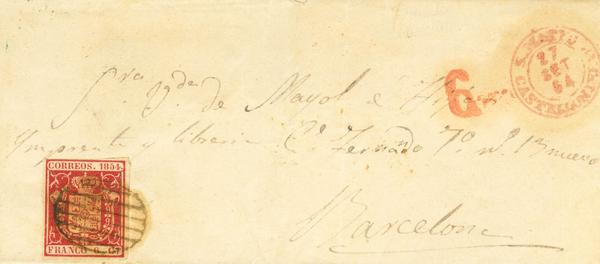 27
SET
54
6
Sra. Vda. de Mayol é Hijos
Imprenta y libreria Ce. Fernando 7º nº 13 nuevo
CORREOS. 1854.
FRANCO 6 Cs
Barcelona